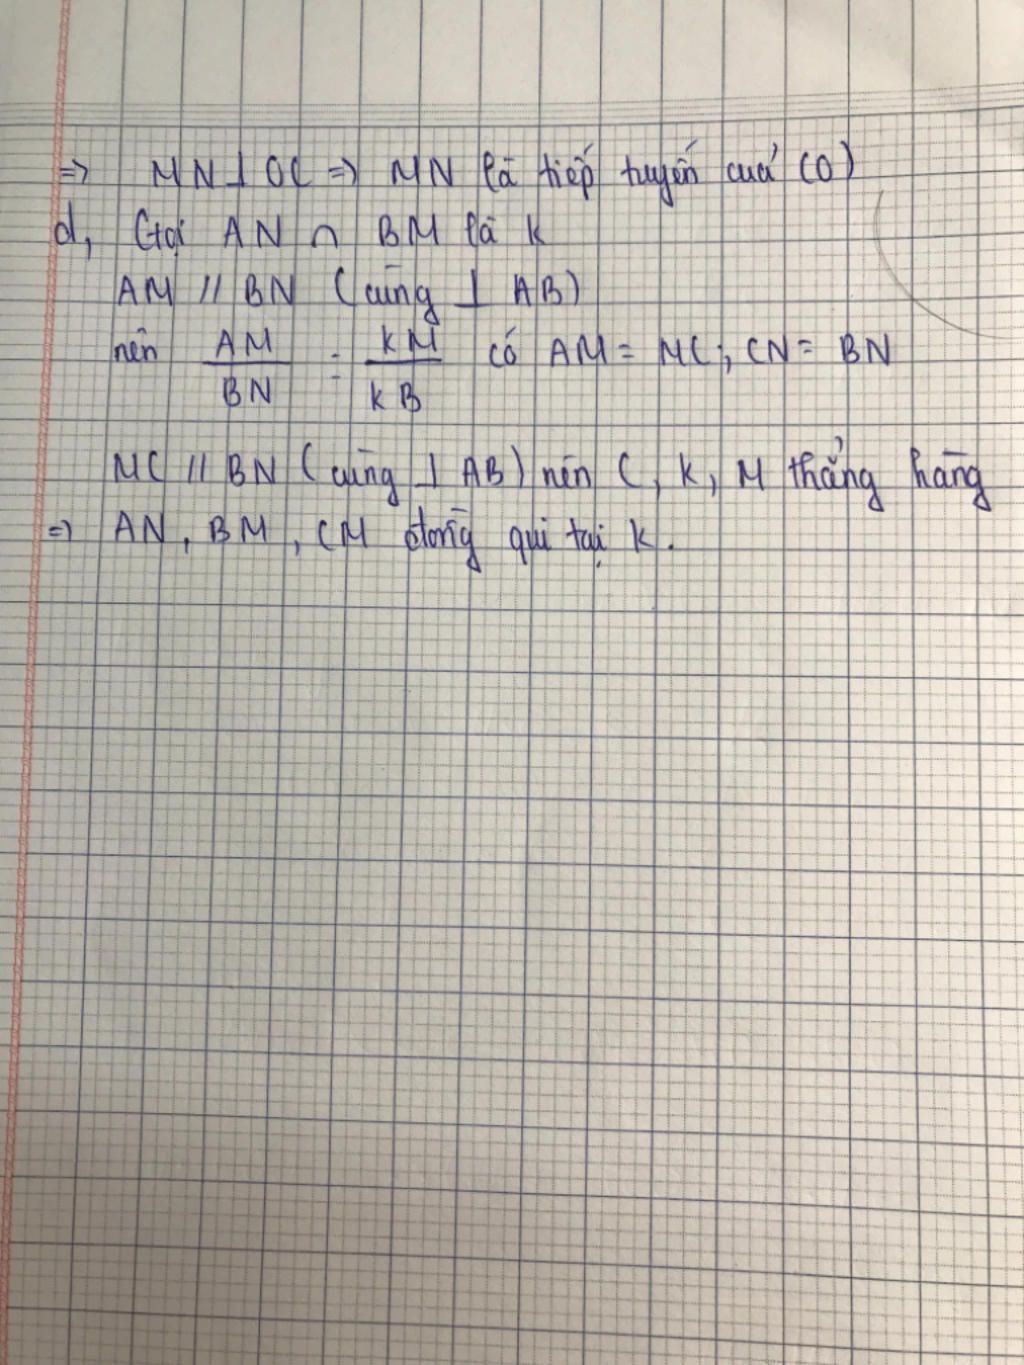 => MN ⊥ OC => MN là tiếp tuyến cuả (O)
d, Gọi AN ∩ BM là K
AM // BN (cùng ⊥ AB)
nên AM/BN = KM/KB có AM = MC; CN = BN
MC // BN (cùng ⊥ AB) nên C, K, M thẳng hàng
=> AN, BM, CM đồng qui tại K.